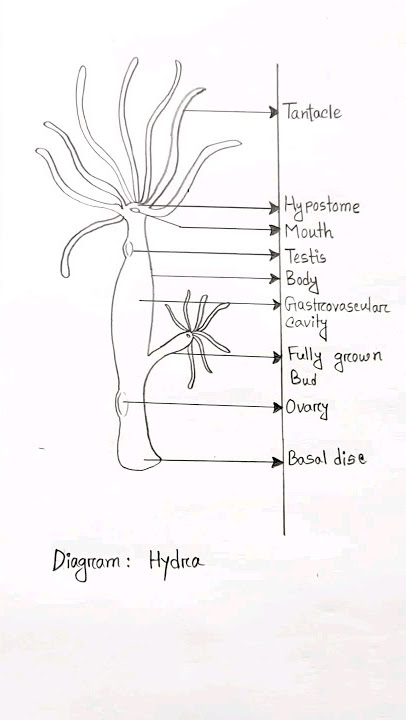 Tantacle
Hypostome
Mouth
Testis
Body
Gastrovascular
cavity
Fully grown
Bud
Ovary
Basal disc
Diagram: Hydra